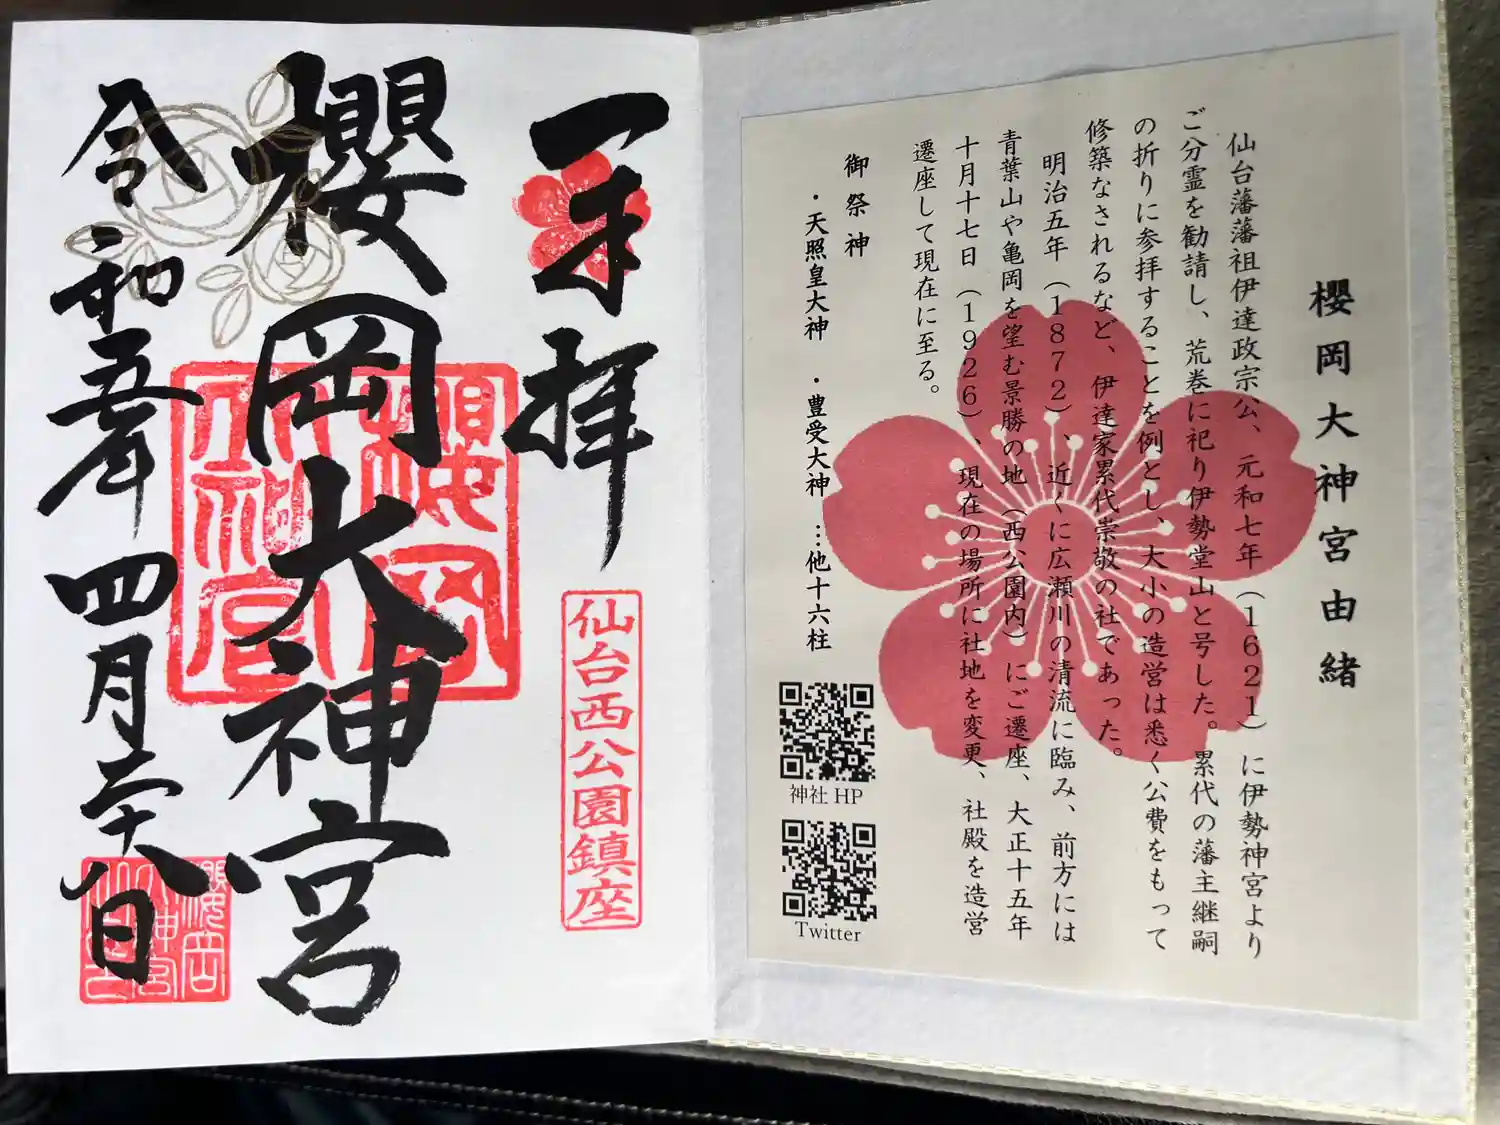 櫻岡大神宮由緒
仙台藩藩祖伊達政宗公、元和七年（1621）に伊勢神宮より
ご分霊を勧請し、荒巻に祀り伊勢堂山と号した。累代の藩主継嗣
の折りに参拝することを例とし、大小の造営は悉く公費をもって
修築なされるなど、伊達家累代崇敬の社であった。
明治五年（1872）、近くに広瀬川の清流に臨み、前方には
青葉山や亀岡を望む景勝の地（西公園内）にご遷座、大正十五年
十月十七日（1926）、現在の場所に社地を変更、社殿を造営
遷座して現在に至る。
御祭神
・天照皇大神　・豊受大神　…他十六柱
神社HP
Twitter
奉拝
仙台西公園鎮座
櫻岡大神宮
櫻岡
大神宮
令和五年四月二十八日
櫻岡
大神宮